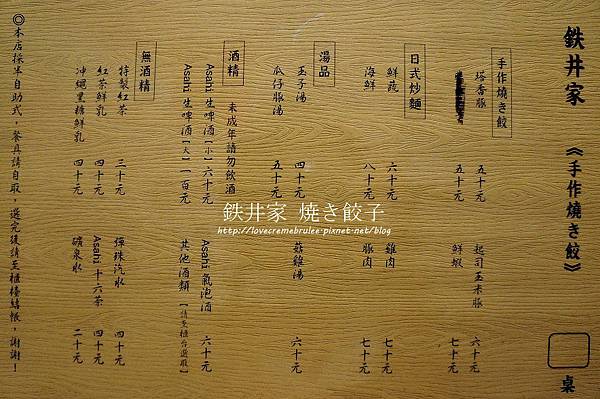 鉄井家 《手作燒き餃》
桌
手作燒き餃
塔香豚 五十元 起司玉米豚 六十元
五十元 鮮蝦 七十元
日式炒麵
鮮菇 六十元 雞肉 七十元
海鮮 八十元 豚肉 七十元
湯品
玉子湯 四十元 菇雞湯 六十元
瓜仔豚湯 五十元
酒精 未成年請勿飲酒
Asahi 生啤酒【小】六十元 Asahi 氣泡酒 六十元
Asahi 生啤酒【大】一百元 其他酒類【請至櫃台選取】
無酒精
特製紅茶 三十元 彈珠汽水 四十元
紅茶鮮乳 四十元 Asahi 十六茶 四十元
沖繩黑糖鮮乳 四十元 礦泉水 二十元
◎本店採半自助式，餐具請自取，選完後請至櫃檯結帳，謝謝！
鉄井家 燒き餃子
http://lovecremebrulee.pixnet.net/blog